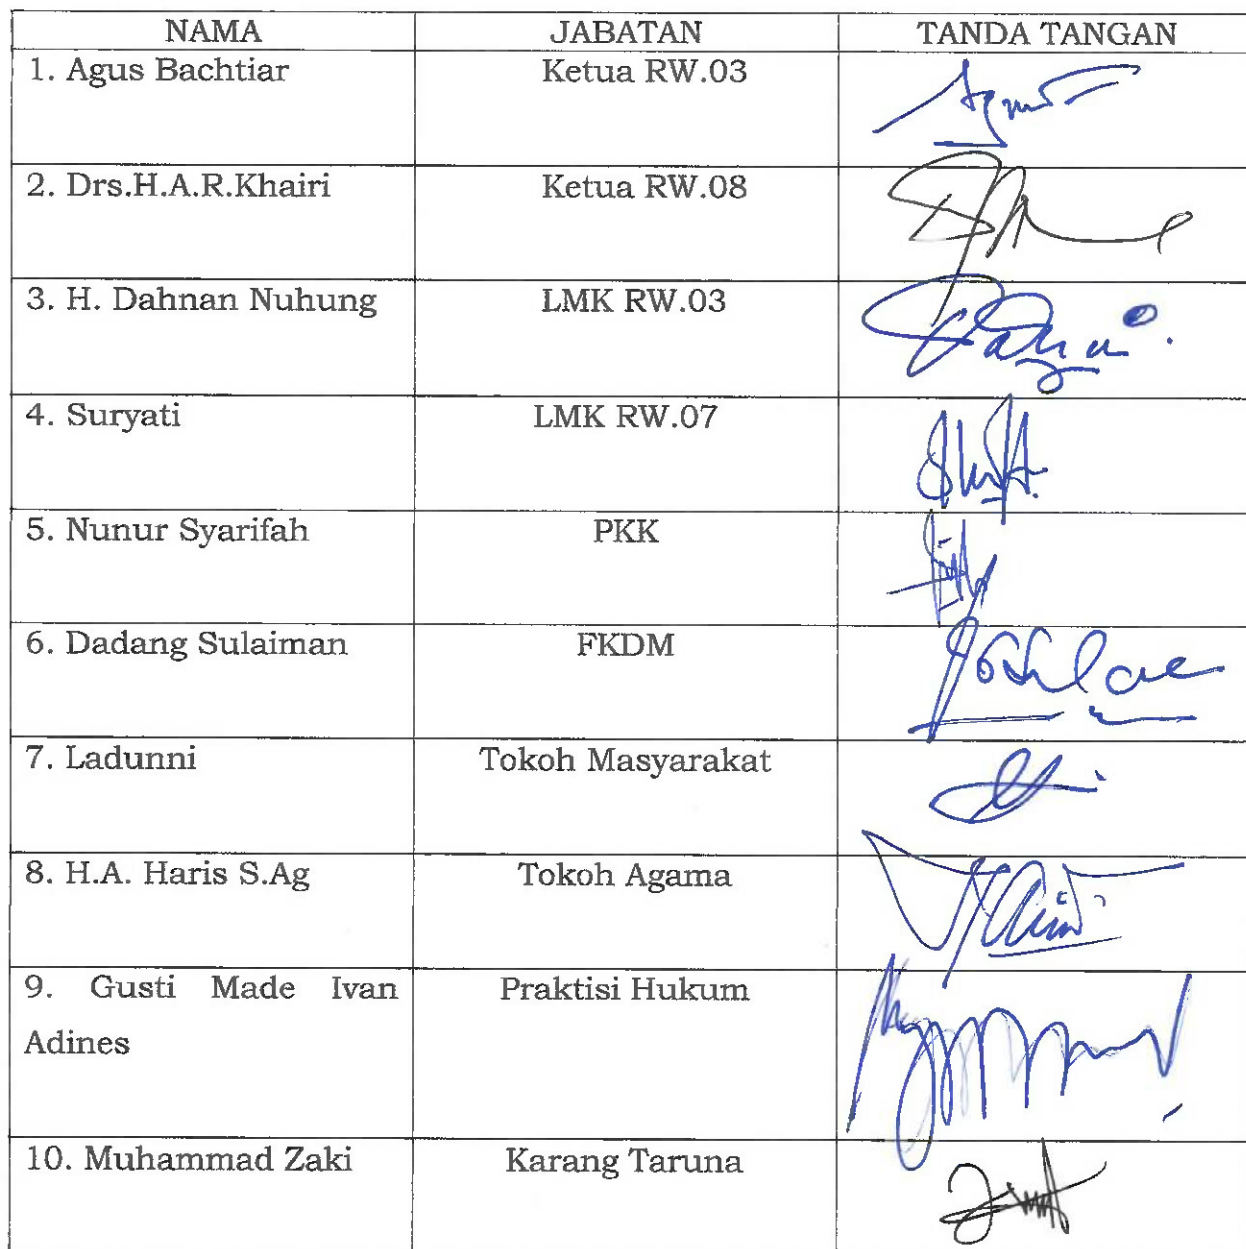 NAMA JABATAN TANDA TANGAN
1. Agus Bachtiar Ketua RW.03
2. Drs.H.A.R.Khairi Ketua RW.08
3. H. Dahnan Nuhung LMK RW.03
4. Suryati LMK RW.07
5. Nunur Syarifah PKK
6. Dadang Sulaiman FKDM
7. Ladunni Tokoh Masyarakat
8. H.A. Haris S.Ag Tokoh Agama
9. Gusti Made Ivan Praktisi Hukum
Adines
10. Muhammad Zaki Karang Taruna